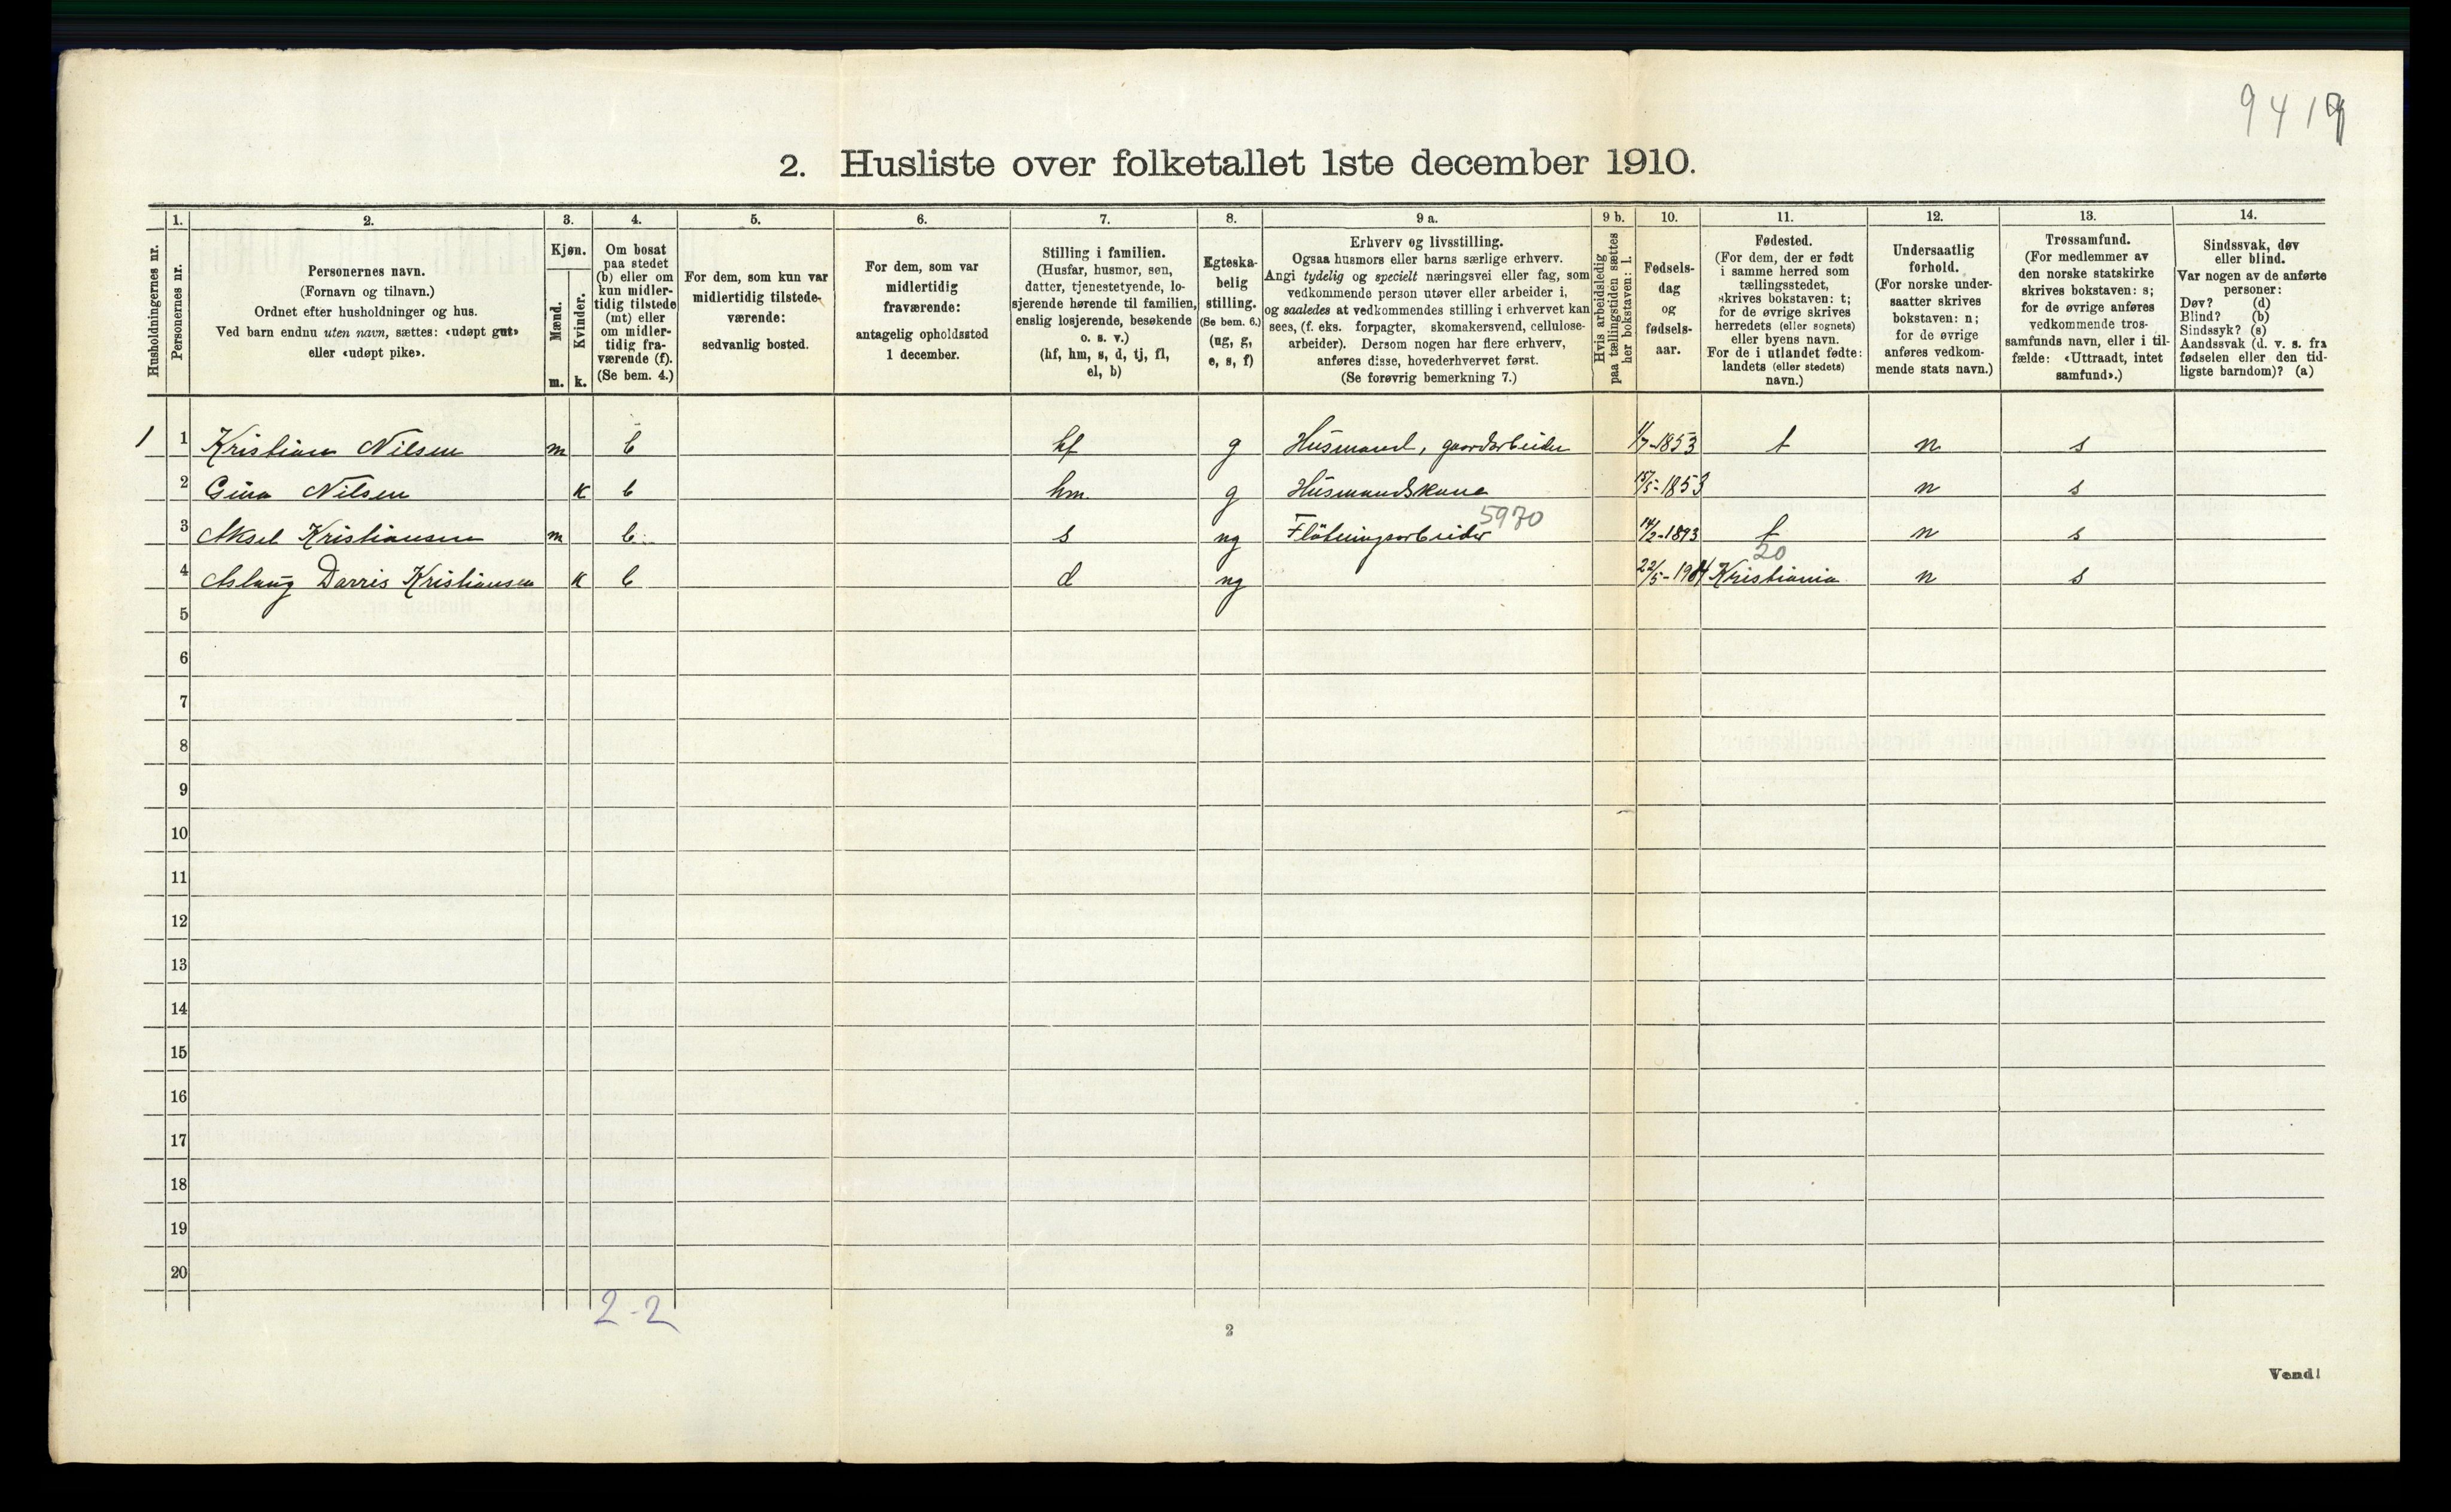 9419
2. Husliste over folketallet 1ste december 1910.
Husholdningernes nr.
1.
Personernes nr.
2.
Personernes navn.
(Fornavn og tilnavn.)
Ordnet efter husholdninger og hus.
Ved barn endnu uten navn, sættes: «udøpt gut»
eller «udøpt pike».
3.
Kjøn.
Mænd.
Kvinder.
m. k.
4.
Om bosat
paa stedet
(b) eller om
kun midler-
tidig tilstede
(mt) eller
om midler-
tidig fra-
værende (f).
(Se bem. 4.)
5.
For dem, som kun var
midlertidig tilstede-
værende:
sedvanlig bosted.
6.
For dem, som var
midlertidig
fraværende:
antagelig opholdssted
1 december.
7.
Stilling i familien.
(Husfar, husmor, søn,
datter, tjenestetyende, lo-
sjerende hørende til familien,
enslig losjerende, besøkende
o. s. v.)
(hf, hm, s, d, tj, fl,
el, b)
8.
Egteska-
belig
stilling.
(Se bem. 6.)
(ug, g,
e, s, f)
9 a.
Erhverv og livsstilling.
Ogsaa husmors eller barns særlige erhverv.
Angi tydelig og specielt næringsvei eller fag, som
vedkommende person utøver eller arbeider i,
og saaledes at vedkommendes stilling i erhvervet kan
sees, (f. eks. forpagter, skomakersvend, cellulose-
arbeider). Dersom nogen har flere erhverv,
anføres disse, hovederhvervet først.
(Se forøvrig bemerkning 7.)
9 b.
Hvis arbeidsledig
paa tællingstiden sættes
her bokstaven: l.
10.
Fødsels-
dag
og
fødsels-
aar.
11.
Fødested.
(For dem, der er født
i samme herred som
tællingsstedet,
skrives bokstaven: t;
for de øvrige skrives
herredets (eller sognets)
eller byens navn.
For de i utlandet fødte:
landets (eller stedets)
navn.)
12.
Undersaatlig
forhold.
(For norske under-
saatter skrives
bokstaven: n;
for de øvrige
anføres vedkom-
mende stats navn.)
13.
Trossamfund.
(For medlemmer av
den norske statskirke
skrives bokstaven: s;
for de øvrige anføres
vedkommende tros-
samfunds navn, eller i til-
fælde: «Uttraadt, intet
samfund».)
14.
Sindssvak, døv
eller blind.
Var nogen av de anførte
personer:
Døv? (d)
Blind? (b)
Sindssyk? (s)
Aandssvak (d. v. s. fra
fødselen eller den tid-
ligste barndom)? (a)
1 1 Kristian Nilsen m b hf g Husmand, gaardarbeider 1/7-1853 t n s
2 Gina Nilsen k b hm g Husmandskone 15/5-1853 n s
5970
3 Aksel Kristiansen m b s ug Flötningsarbeider 14/2-1893 t n s
20
4 Aslaug Darris Kristiansen k b d ug 22/5-1904 Kristiania n s
5
6
7
8
9
10
11
12
13
14
15
16
17
18
19
20
2-2
2
Vend!